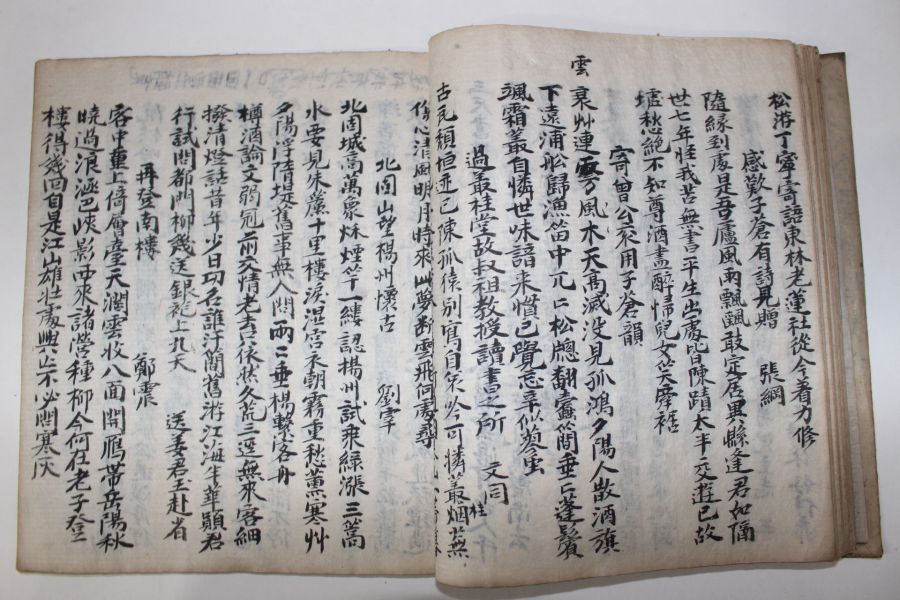 丁寧寄語東林老蓮社從今着力修
感歎子蒼有詩見贈 張綱
隨緣到處是吾廬風雨飄飄敢定居異縣逢君如隔
世七年怪我苦無書平生出處皆陳蹟太半交遊已故
墟愁絶不知尊酒盡醉歸兒女笑牽裾
寄曾公袞用子蒼韻
雲
衰艸連雲万風木天高滅没見孤鴻夕陽人散酒旗
下遠浦舩歸漁笛中兀〻松牕翻蠹簡垂〻蓬鬢
颯霜叢自憐世味諳来慣已覺忘辛似蓼虫
過叢桂堂故叔祖教授讀書之所 文同
桂
古瓦頹垣迹已陳孤猿別寫自哀吟可憐叢烟蕪
傷心清風明月時来此夢斷雲飛何處尋
北固山望楊州懷古 劉宰
北固城高萬象秋煙竿一縷認楊州試乘綠漲三篙
水要見朱簾十里樓淚湿宮衣朝霧重愁薰寒艸
夕陽浮隋堤舊事無人問兩〻垂楊繫客舟
樽酒論文弱冠前交情老去只依然久荒三逕無来客細
撥清燈話昔年少日功名誰汗簡舊游江海半華顚君
行試問都門柳幾送銀袍上九天 送姜君玉赴省
再登南樓 鄭震
客中重上倚層臺天濶雲收八面開鴈帶岳陽秋
曉過浪涵巴峽影西来諸營種柳今何在老子登
樓得幾回自是江山雄壮處興亡不必問寒灰